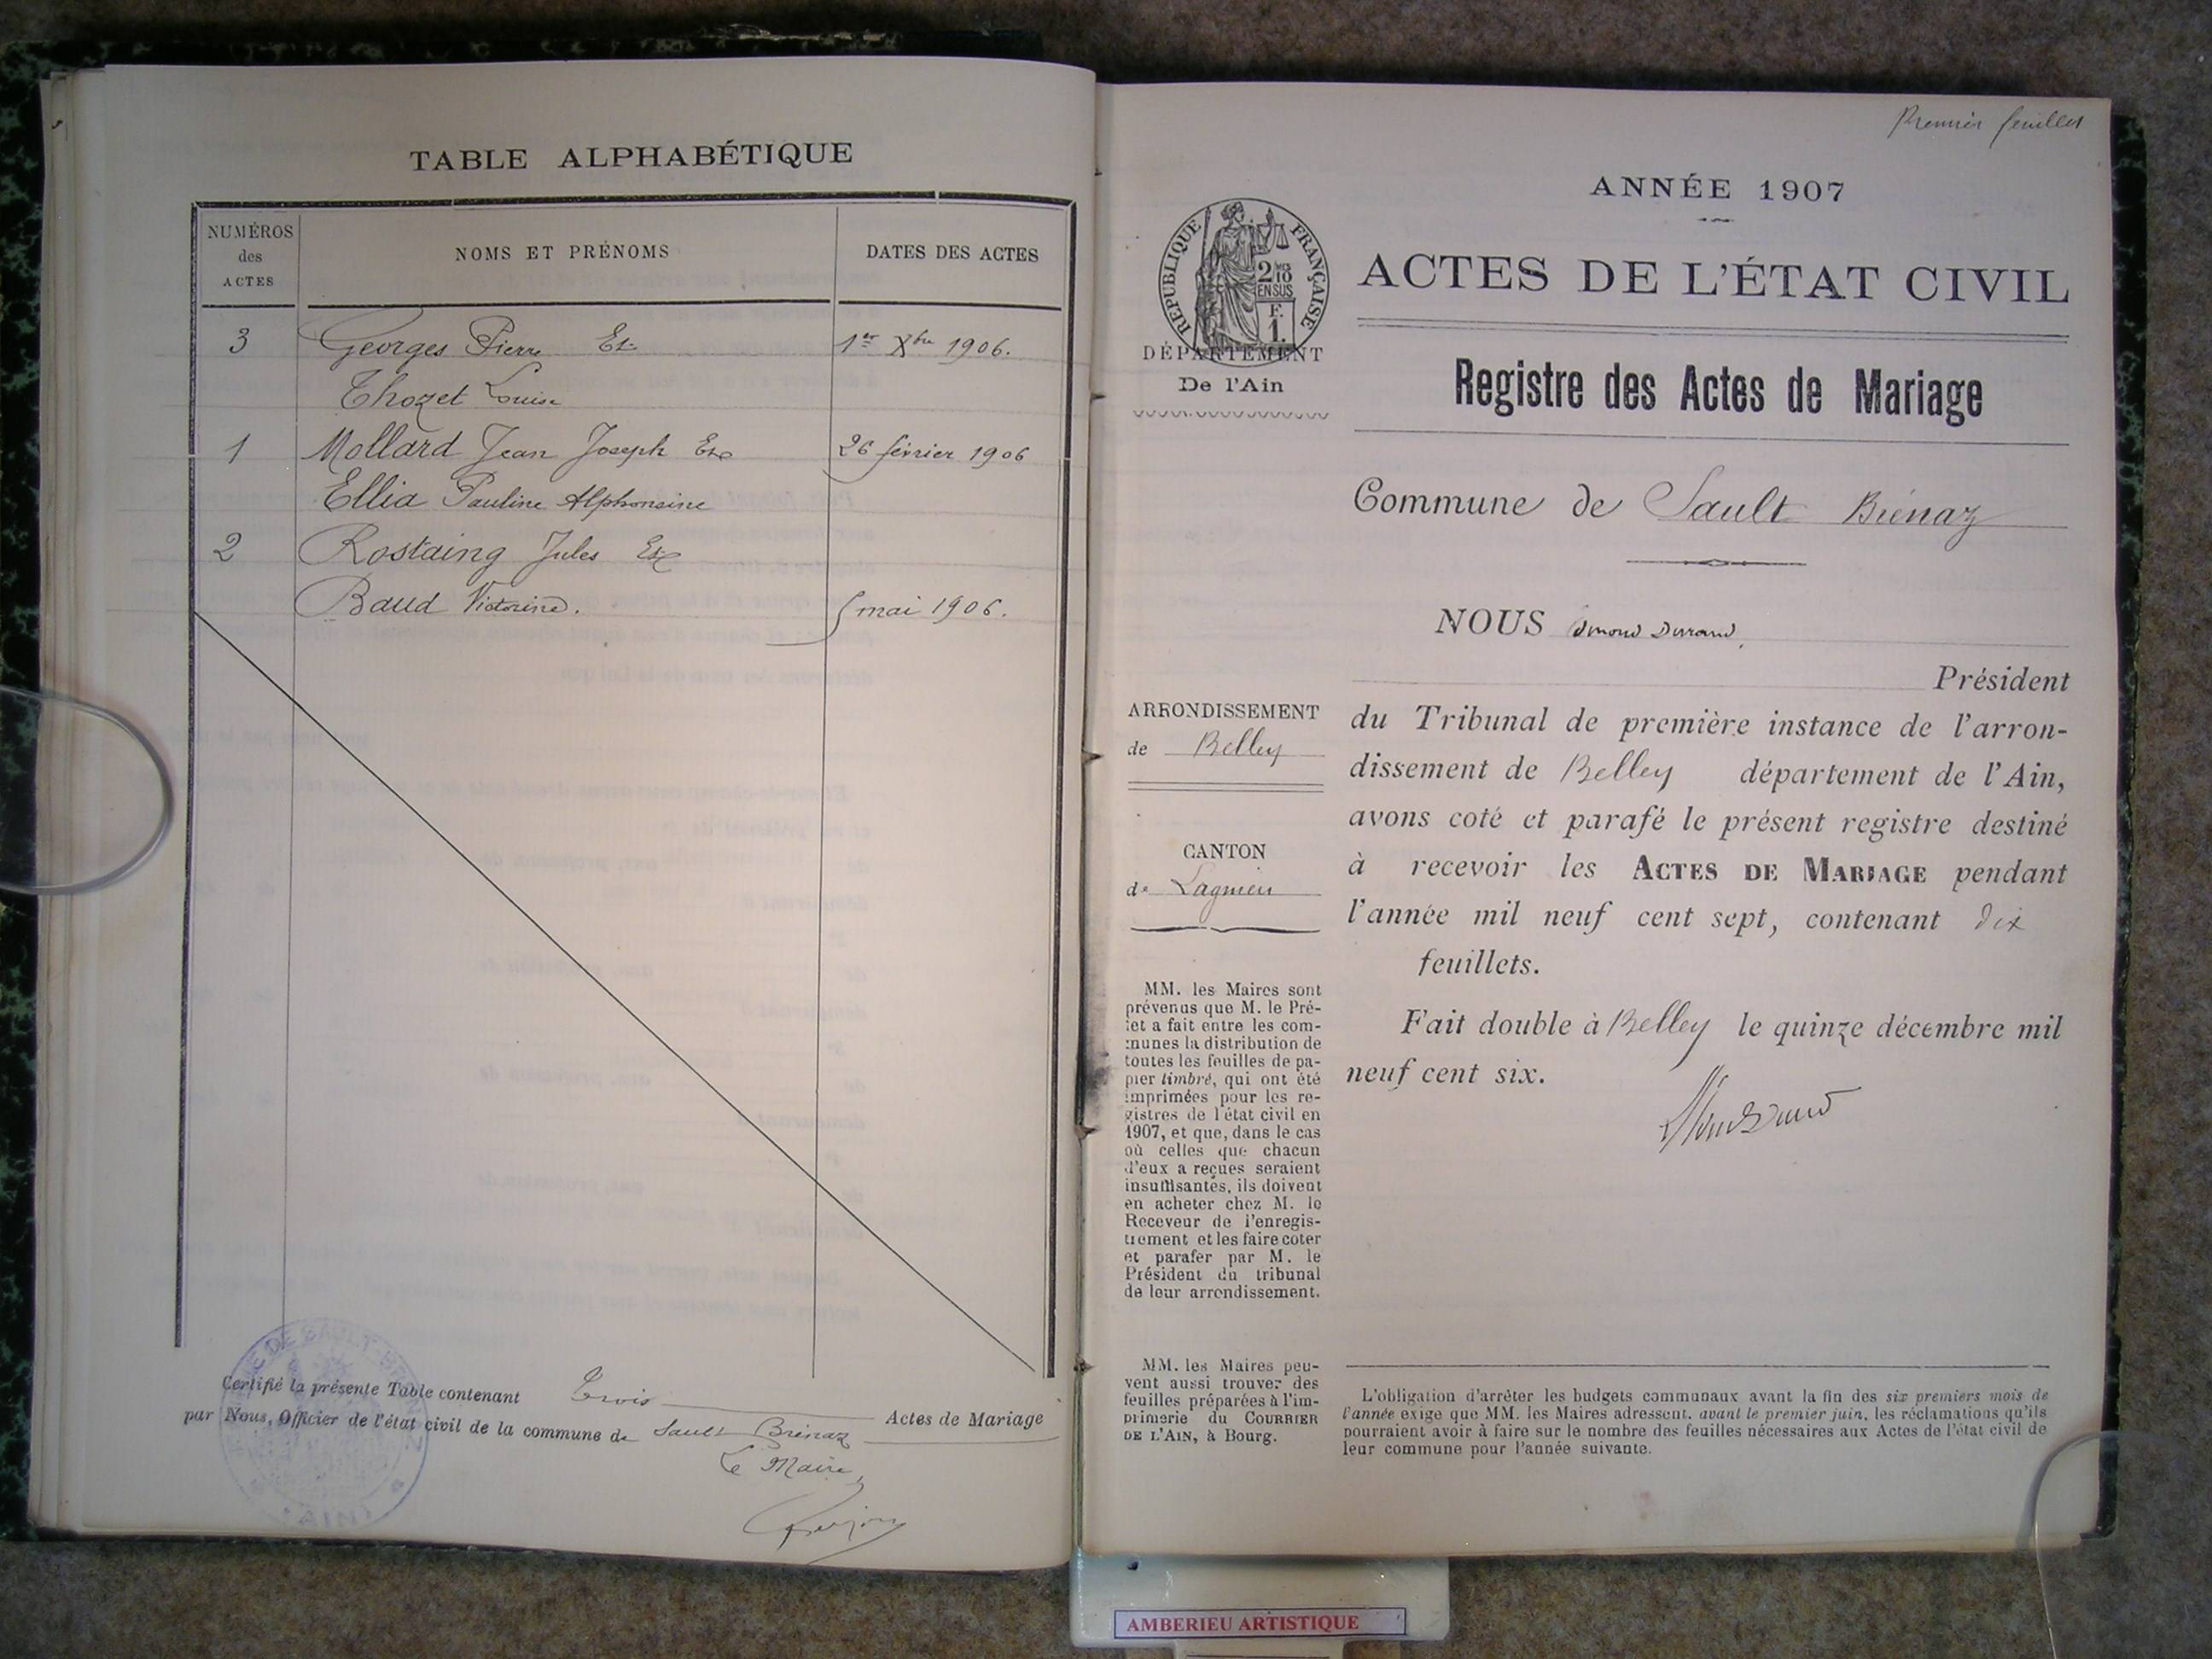 TABLE ALPHABÉTIQUE
NUMÉROS des ACTES
NOMS ET PRÉNOMS
DATES DES ACTES
3 Georges Pierre Et 1er Xbre 1906.
Thozet Louise
1 Mollard Jean Joseph Et 26 février 1906
Ellia Pauline Alphonsine
2 Rostaing Jules Et
Baud Victorine. 5 mai 1906.
Certifié la présente Table contenant Trois Actes de Mariage
par Nous, Officier de l'état civil de la commune de Sault Brénaz
Le Maire,
Premier feuillet
ANNÉE 1907
ACTES DE L'ÉTAT CIVIL
Registre des Actes de Mariage
RÉPUBLIQUE FRANÇAISE
2 10 EN SUS
F. 1.
DÉPARTEMENT
De l'Ain
Commune de Sault Brénaz
NOUS Durand,
Président
du Tribunal de première instance de l'arron-
dissement de Belley département de l'Ain,
avons coté et parafé le présent registre destiné
à recevoir les ACTES DE MARIAGE pendant
l'année mil neuf cent sept, contenant dix
feuillets.
Fait double à Belley le quinze décembre mil
neuf cent six.
ARRONDISSEMENT
de Belley
CANTON
de Lagnieu
MM. les Maires sont
prévenus que M. le Pré-
fet a fait entre les com-
munes la distribution de
toutes les feuilles de pa-
pier timbré, qui ont été
imprimées pour les re-
gistres de l'état civil en
1907, et que, dans le cas
où celles que chacun
d'eux a reçues seraient
insuffisantes, ils doivent
en acheter chez M. le
Receveur de l'enregis-
trement et les faire coter
et parafer par M. le
Président du tribunal
de leur arrondissement.
MM. les Maires peu-
vent aussi trouver des
feuilles préparées à l'im-
primerie du COURRIER
DE L'AIN, à Bourg.
L'obligation d'arrêter les budgets communaux avant la fin des six premiers mois de
l'année exige que MM. les Maires adressent, avant le premier juin, les réclamations qu'ils
pourraient avoir à faire sur le nombre des feuilles nécessaires aux Actes de l'état civil de
leur commune pour l'année suivante.
AMBERIEU ARTISTIQUE